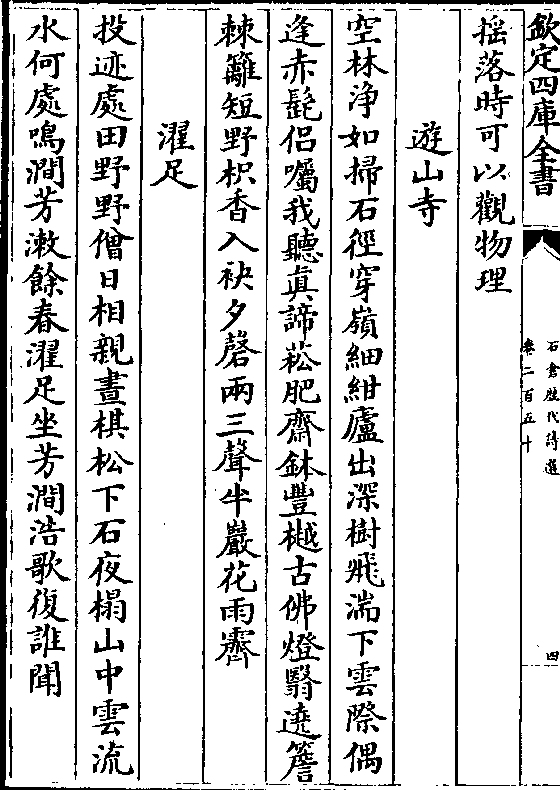 欽定四庫全書
石倉歷代詩選
卷二百五十
四
揺落時可以觀物理
遊山寺
空林浄如掃石徑穿嶺細紺廬出深樹飛湍下雲際偶
逢赤髭侣囑我聽真諦菘肥齋鉢豐樾古佛燈翳遶簷
棘籬短野枳香入袂夕磬兩三聲半巖花雨霽
濯足
投迹處田野野僧日相親晝棋松下石夜榻山中雲流
水何處鳴澗芳漱餘春濯足坐芳澗浩歌復誰聞